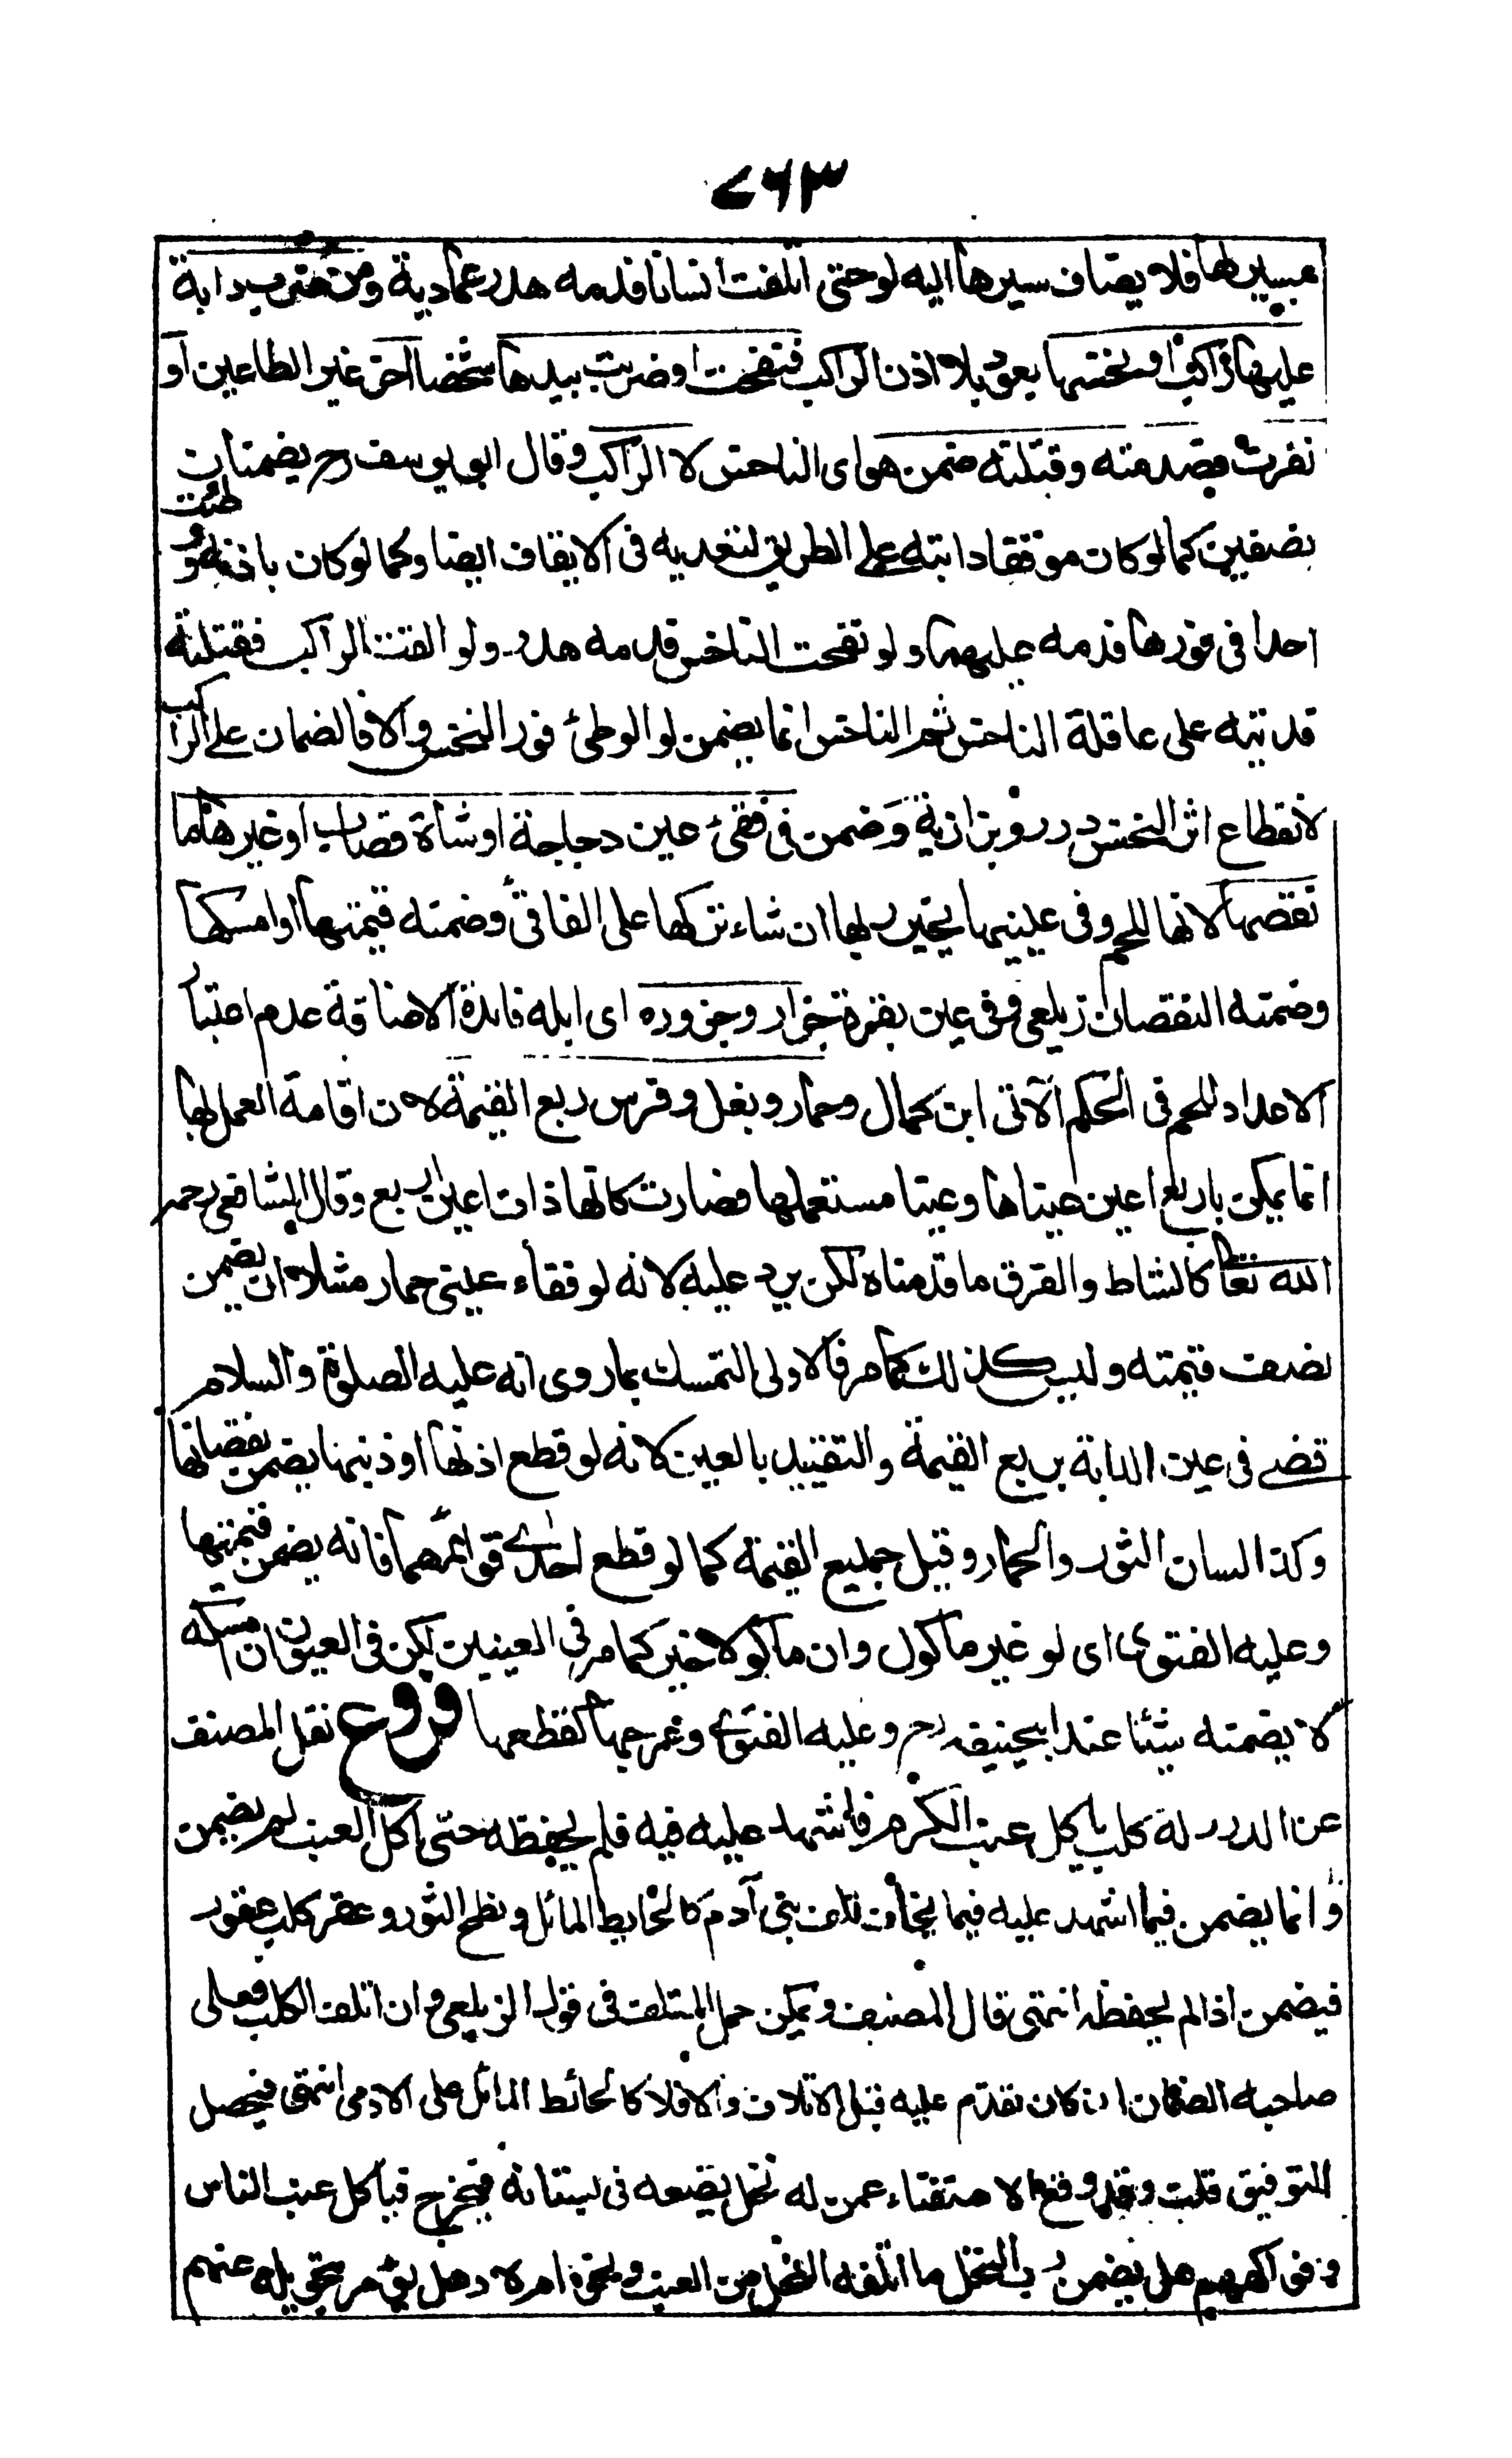 ٧٦٣
بمسير لها فلا يضاف سيرها اليه لو حتى اتلفت انسانا فدمه هدر عمادية ومن ضرب دابة
عليها راكب او نخسها بعود بلا اذن الراكب فنفحت او ضربت بيدها شخصا اخر غير الطاعن او
نفرت فصدمته وقتلته ضمن هو اي الناخس لا الراكب وقال ابو يوسف رح يضمنان
نصفين كما لو كان موقفا دابته على الطريق لتعديه في الايقاف ايضا وكما لو كان باذنه ووطئت
احدا في فورها فدمه عليهما ولو نفحت الناخس فدمه هدر ولو القت الراكب فقتلته
فديته على عاقلة الناخس ثم الناخس انما يضمن لو الوطئ فور النخس والا فالضمان على الراكب
لانقطاع اثر النخس درر وبزازية وضمن في فقئ عين دجاجة او شاة قصاب او غيرها ما
نقصها لانها للحم وفي عينيها يخير ربها ان شاء تركها على الفاقئ وضمنه قيمتها او امسكها
وضمنه النقصان زيلعي وفي عين بقرة جزار وجزوره اي ابله فائدة الاضافة عدم اعتبار
الاعداد للحم في الحكم الآتي ابن كمال وحمار وبغل وفرس ربع القيمة لان اقامة العمل بها
انما يمكن باربع اعين عيناها وعينا مستعملها فصارت كانها ذات اعين اربع وقال الشافعي رحمه
الله تعا كالشاط والفرق ما قدمناه لكن يرد عليه لانه لو فقاء عيني حمار مثلا ان يضمن
نصف قيمته وليس كذلك كما مر فالاولى التمسك بما روى انه عليه الصلوة والسلام
قضى في عين الدابة بربع القيمة والتقييد بالعين لانه لو قطع اذنها او ذنبها يضمن نقصانها
وكذا لسان الثور والحمار وقيل جميع القيمة كما لو قطع احدى قوائمهما فانه يضمن قيمتها
وعليه الفتوى اي لو غير ماكول وان ماكولا خير كما مر في العينين لكن في العيون ان امسكه
لا يضمنه شيئا عند ابيحنيفه رح وعليه الفتوى وعرجها كقطعها فروع نقل المصنف
عن الدرر له كلب ياكل عنب الكرم فاشهد عليه فيه فلم يحفظه حتى اكل العنب لم يضمن
وانما يضمن فيما اشهد عليه فيما يخاف تلف بني آدم كالحايط المائل ونطح الثور وعقر كلب عقور
فيضمن اذا لم يحفظه انتهى قال المصنف ويمكن حمل المتلف في قول الزيلعي وان اتلف الكلب فعلى
صاحبه الضمان ان كان تقدم عليه قبل الاتلاف والا فلا كالحائط المائل على الادمي انتهى فيحصل
التوفيق قلت وقد وقع الاستفتاء عمن له نحل يضعه في بستانه فيخرج فياكل عنب الناس
وفواكههم هل يضمن رب النحل ما اتلفه النحل من العنب ونحوه ام لا وهل يؤمر بتحويله عنهم